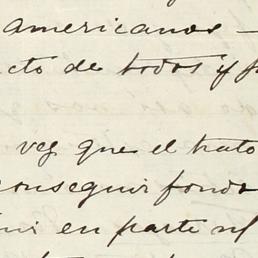 americanos —
cto de todos y
vez que el trato
conseguir fondos
en parte